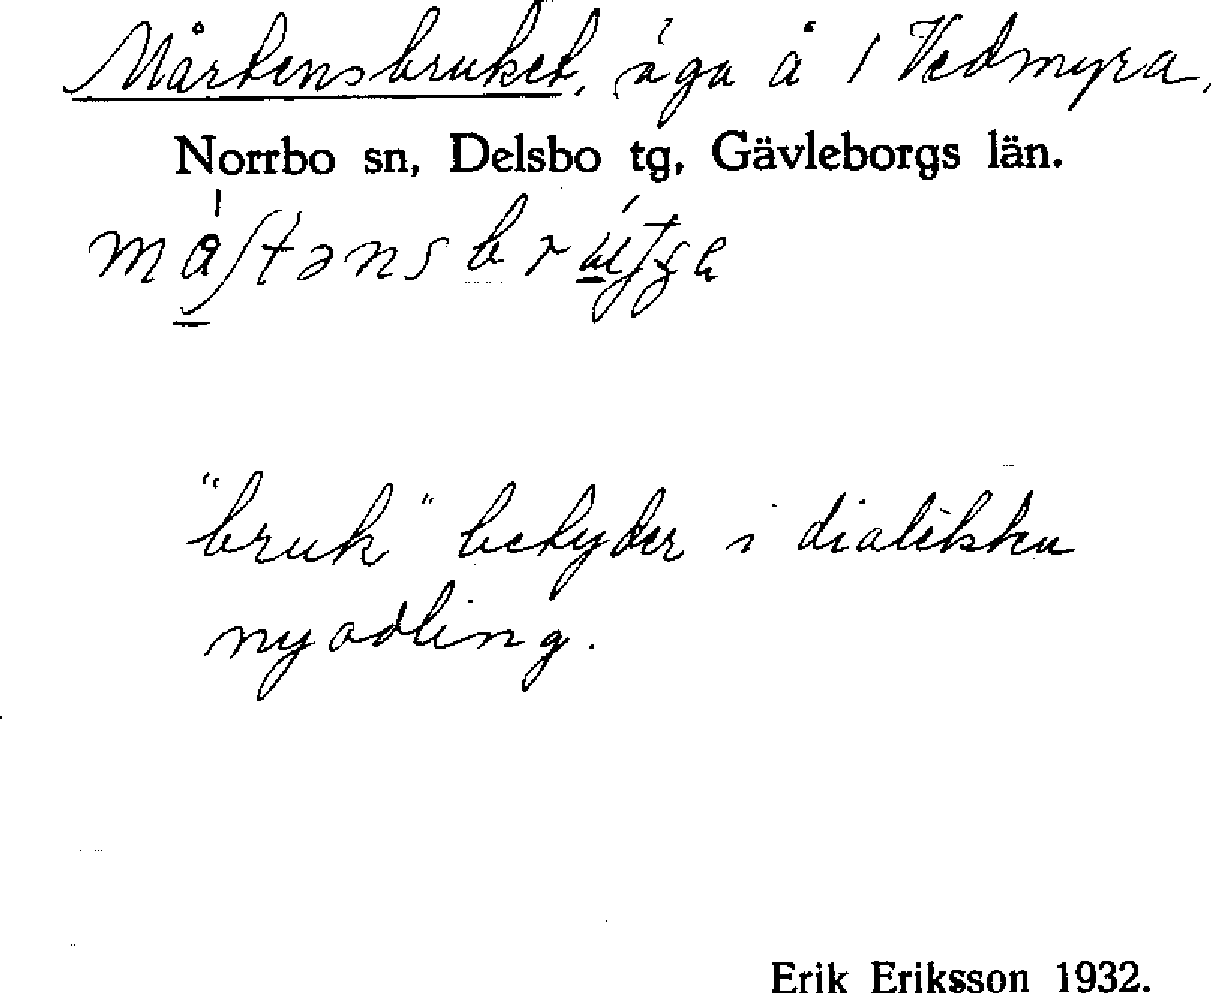 Mårtensbruket, äga å 1 Vedmyra,
Norrbo sn, Delsbo tg, Gävleborgs län.
"bruk" betyder i dialekten
nyodling.
Erik Eriksson 1932.